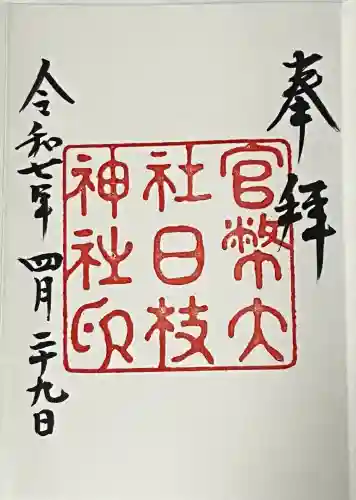 奉拝
官幣大
社日枝
神社印
令和七年 四月二十九日